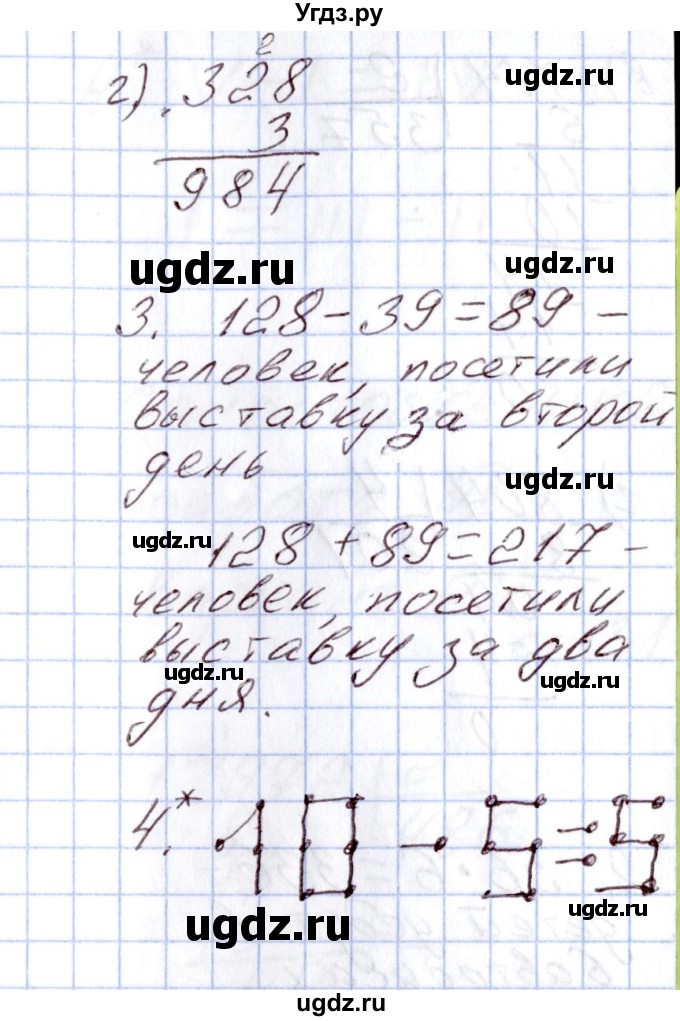 Угдз.ру
2
г). 328
3
984
ugdz.ru
ugdz.ru
ugdz.ru
3. 128 - 39 = 89 -
человек, посетили
выставку за второй
день
ugdz.ru
ugdz.ru
128 + 89 = 217 -
человек, посетили
выставку за два
ugdz.ru
ugdz.ru
дня.
4.* 10 - 5 = 5
ugdz.ru
ugdz.ru
ugdz.ru